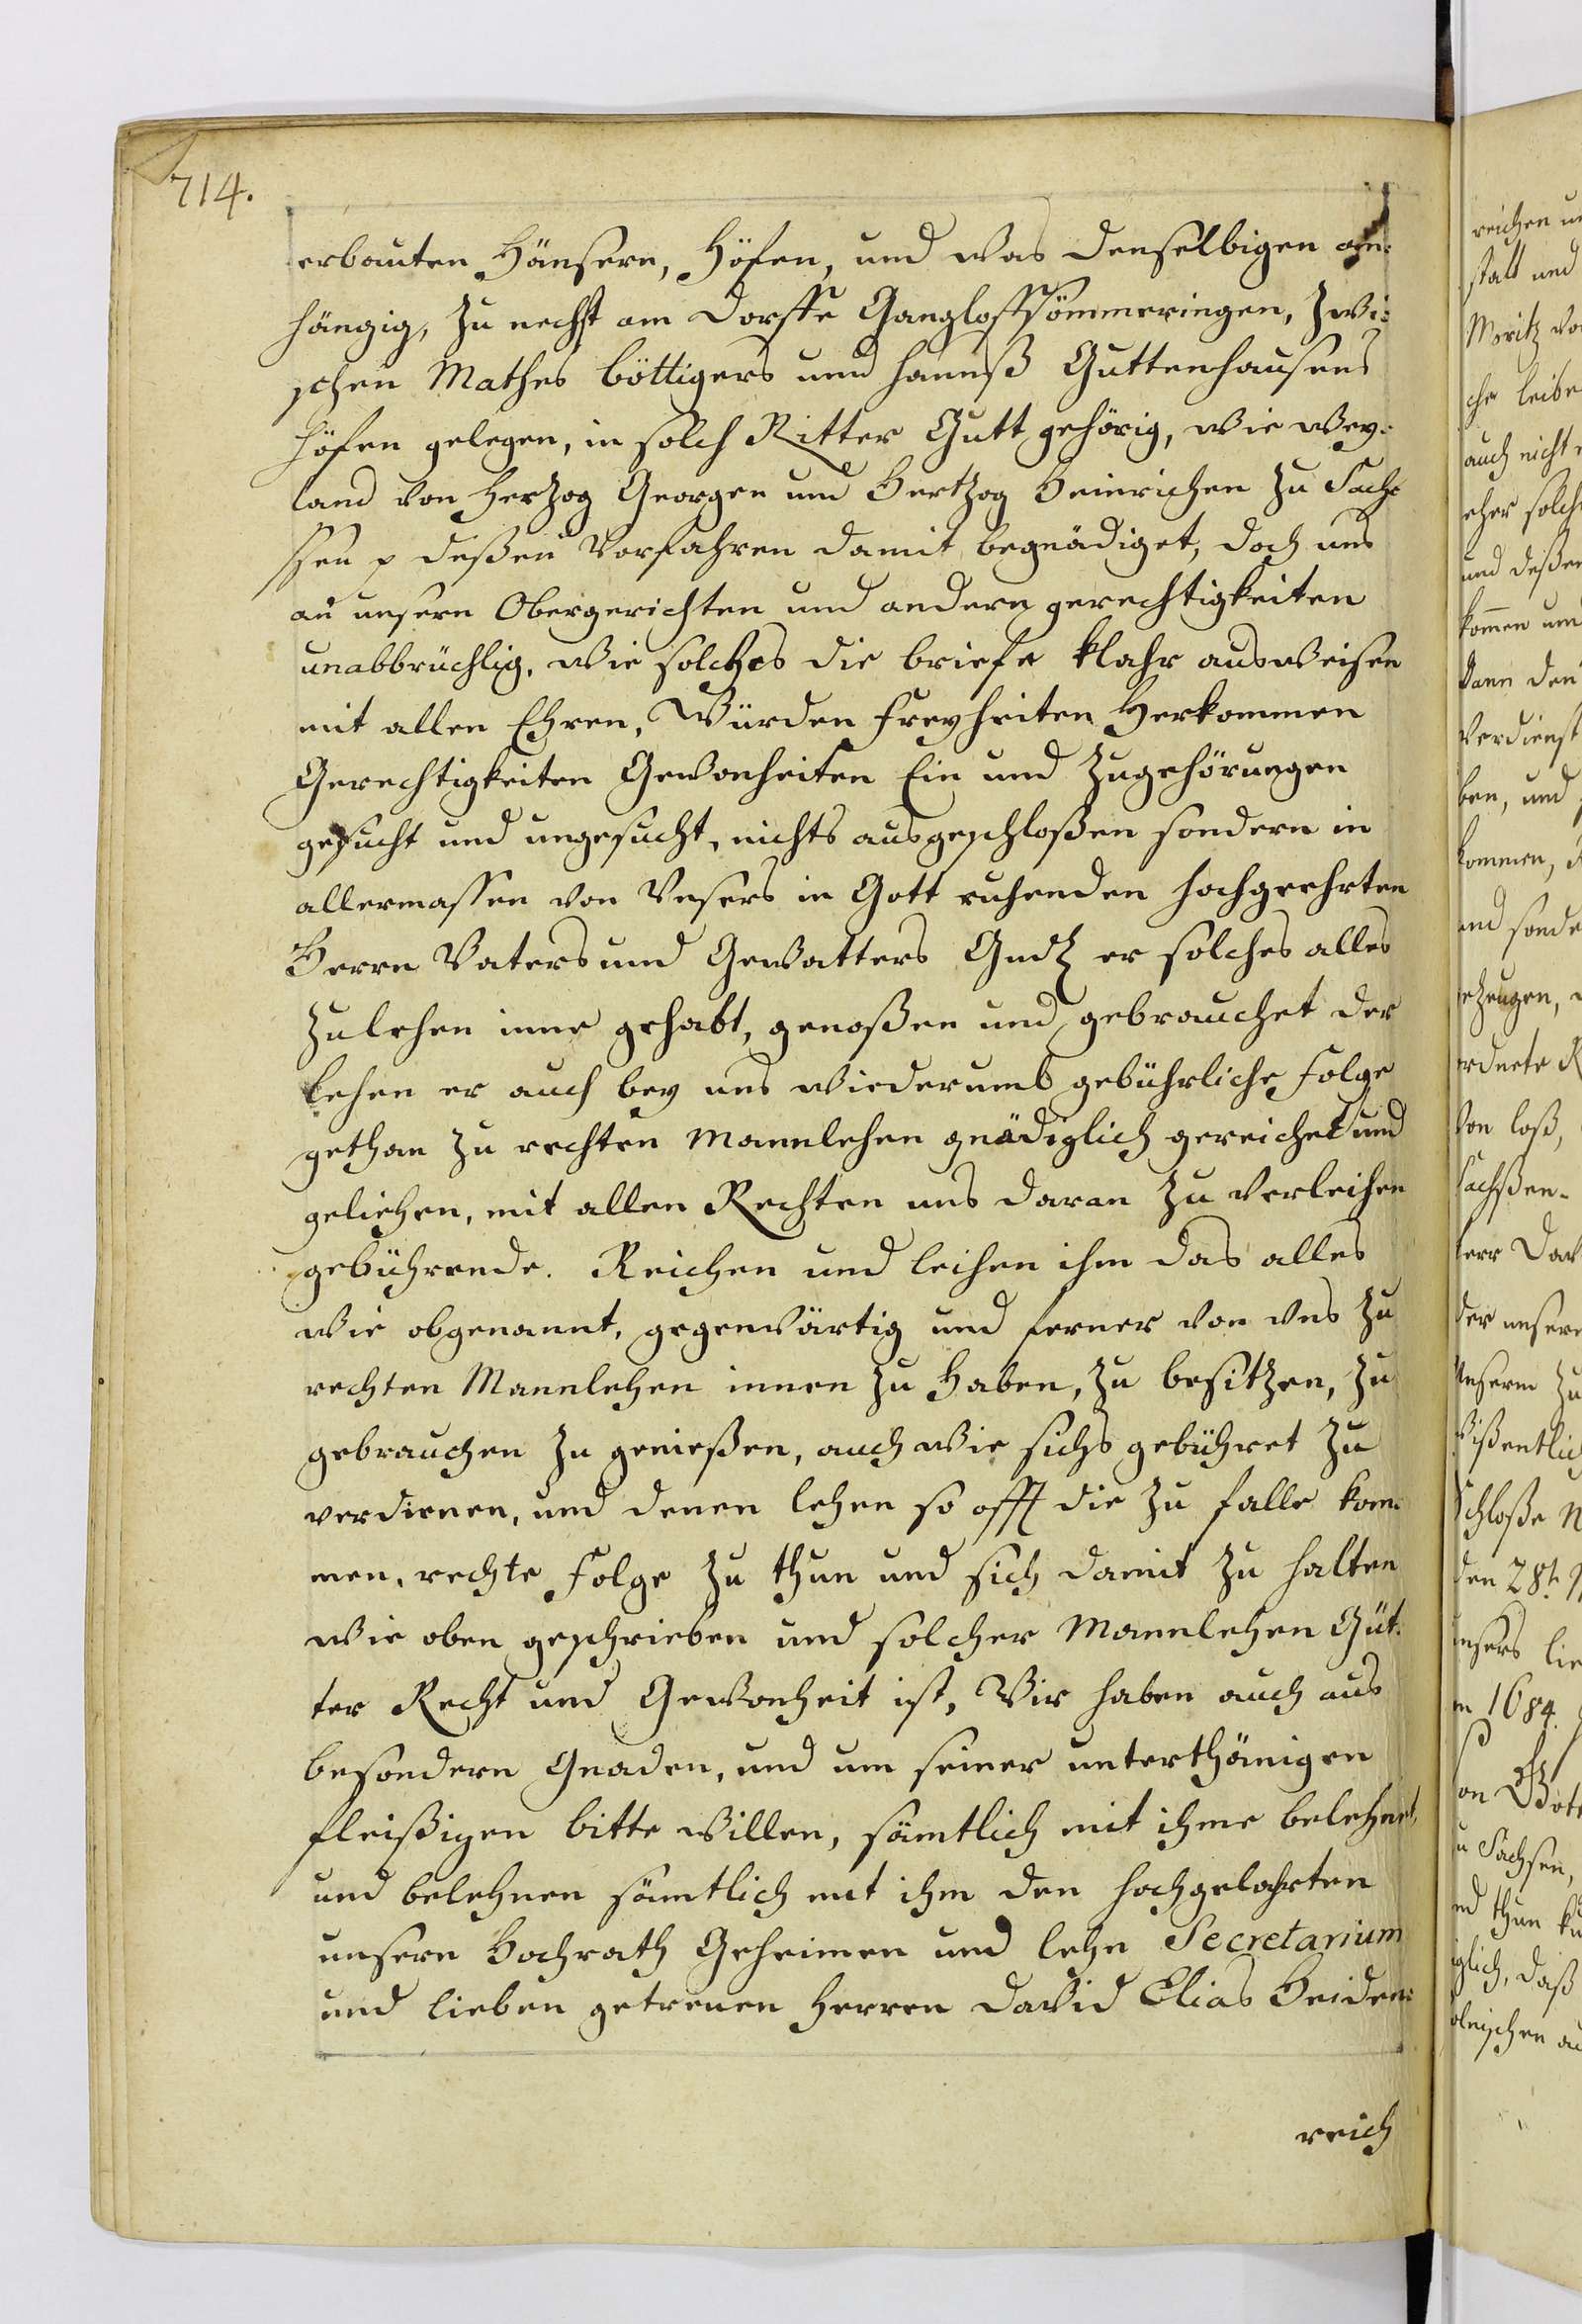 714.
erbauten Häusern, Höfen, und was denselbigen an-
hängig, zu nechst am Dorffe Ganglofssömmeringen, zwi-
schen Mathes Böttigers und Hannß Guttenhausens
Höfen gelegen, in solch Ritter Gutt gehörig, wie wey-
land von Herzog Georgen und Hertzog Heinrichen zu Sach-
ssen p deßen Vorfahren damit begnädiget, doch uns
an unsern Obergerichten und andern gerechtigkeiten
unabbrüchlig, wie solches die briefe klahr ausweisen
mit allen Ehren, Würden freyheiten Herkommen
Gerechtigkeiten Gewonheiten Ein und Zugehörungen
gesucht und ungesucht, nichts ausgeschloßen sondern in
allermassen von Unsers in Gott ruhenden hochgeehrten
Herrn Vaters und Gevatters Gnd er solches alles
zulehen inne gehabt, genoßen und gebrauchet der
lehen er auch bey uns wiederumb gebührliche folge
gethan zu rechten Mannlehen gnädiglich gereichet und
geliehen, mit allen Rechten uns daran zu verleihen
gebührende. Reichen und leihen ihm das alles
wie obgenannt, gegenwärtig und ferner von uns zu
rechten Mannlehen innen zu haben, zu besitzen, zu
gebrauchen zu genießen, auch wie sichs gebühret zu
verdienen, und denen lehen so offt die zu falle kom-
men, rechte folge zu thun und sich damit zu halten
wie oben geschrieben und solcher Mannlehen Güt-
ter Recht und Gewonheit ist, Wir haben auch aus
besondern Gnaden, und um seiner unterthänigen
fleißigen bitte willen, sämtlich mit ihme belehnet,
und belehnen sämtlich mit ihm den hochgelahrten
unsern Hochrath Geheimen und lehn Secretarium
und lieben getreuen Herren David Elias Heiden-
reich
reichen
statt und
Moritz
leibe
auch nicht
eher
und deßen
kommen und
dann den
verdienst
ben, und
kommen,
sonde
von loß,
Sachßen-
der unsern
unserm zu
wißentlich
Schloße
den 28t.
unsers
1684.
Sachsen,
thun
daß